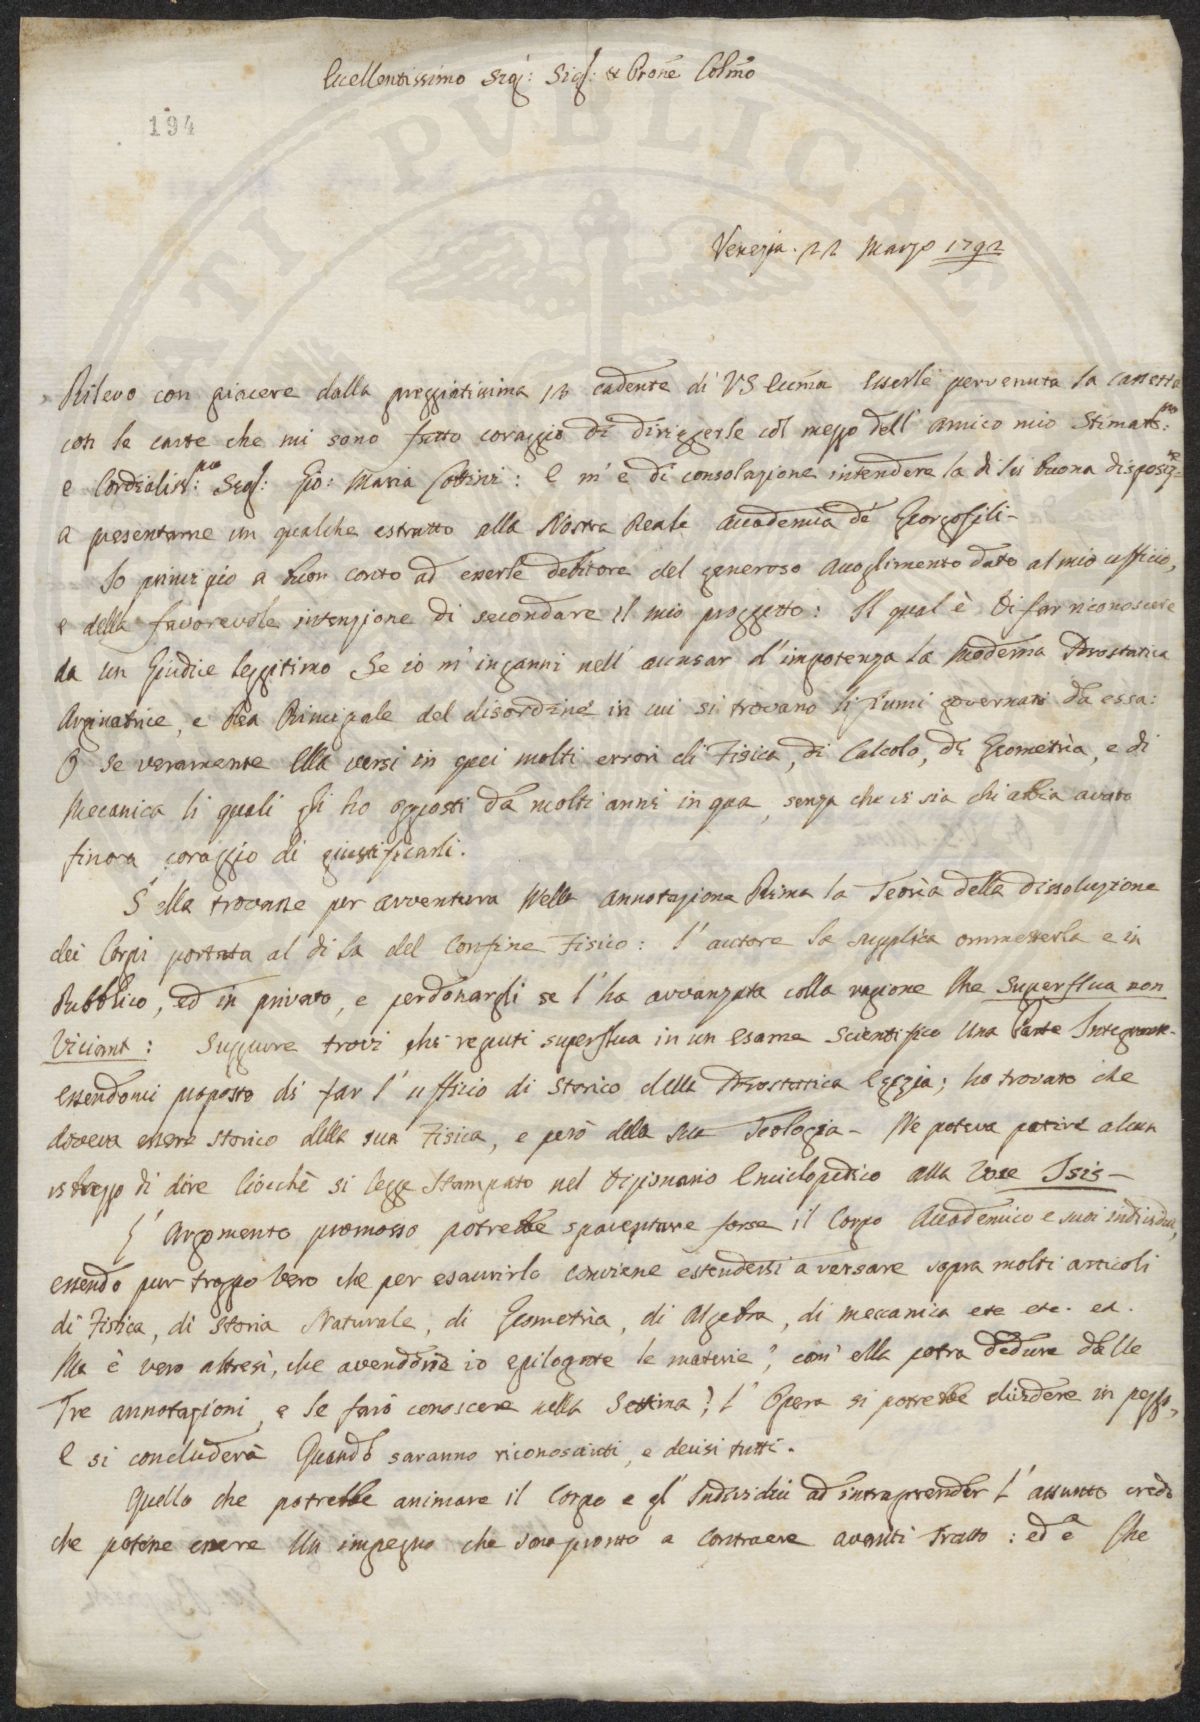 Eccellentissimo Sig.r: Sig.r: e Prone Colmo
194
Venezia. 22 Marzo 1792
Rilevo con piacere dalla preggiatissima 12 cadente di VS Eccma esserle pervenuta la cassetta
con le carte che mi sono fatto coraggio di diriggerle col mezzo dell' amico mio Stimatis:mo
e Cordialiss:mo Sig.r: Gio: Maria : E m' è di consolazione intendere la di lei buona disposiz.ne
a presentarne un qualche estratto alla Nostra Reale Accademia de' Georgofili -
Io principio a buon conto ad esserle debitore del generoso accoglimento dato al mio ufficio,
e della favorevole intenzione di secondare il mio proggetto: Il qual è di far riconoscere
da un Giudice leggitimo Se io m' inganni nell' accusar d' impotenza la Moderna Idrostatica
Arginatrice, e Rea Principale del disordine in cui si trovano li fiumi governati da essa:
O se veramente Ella versi in quei molti errori di Fisica, di Calcolo, di Geometria, e di
Mecanica li quali gli ho opposti da molti anni in qua, senza che vi sia chi abbia avuto
finora coraggio di giustificarli.
S' ella trovasse per avventura Nella annotazione Prima la Teoria della dissoluzione
dei Corpi portata al di la del Confine Fisico: l' autore la supplica ommetterla e in
Pubblico, ed in privato, e perdonargli se l' ha avvanzata colla ragione che Superflua non
Viciant: Suppure trovi chi reputi superflua in un esame Scientifico Una Parte Integrante.
essendomi proposto di far l' ufficio di Storico della Idrostatica Egizia; ho trovato che
doveva essere storico della sua Fisica, e però della sua Teologia - Ne poteva patire alcun
ribrezzo di dire Ciocchè si legge Stampato nel Dizionario Enciclopedico alla Voce Isis -
L' Argomento promosso potrebbe spaventare forse il Corpo Accademico e suoi individui,
essendo pur troppo vero che per esaurirlo conviene estendersi a versare sopra molti articoli
di Fisica, di Storia Naturale, di Geometria, di Algebra, di meccanica etc etc. ec.
Ma è vero altresì, che avendone io epilogate le materie, com' ella potrà dedure dalle
Tre annotazioni, e le farò conoscere nella Settima; l' Opera si potrebbe dividere in pezzi,
E si concluderà Quando saranno riconosciuti, e decisi tutti.
Quello che potrebbe animare il Corpo e gl' Individui ad intraprender l' assunto credo
che potesse essere Un impegno che sono pronto a Contraere avanti Tratto: ed è Che